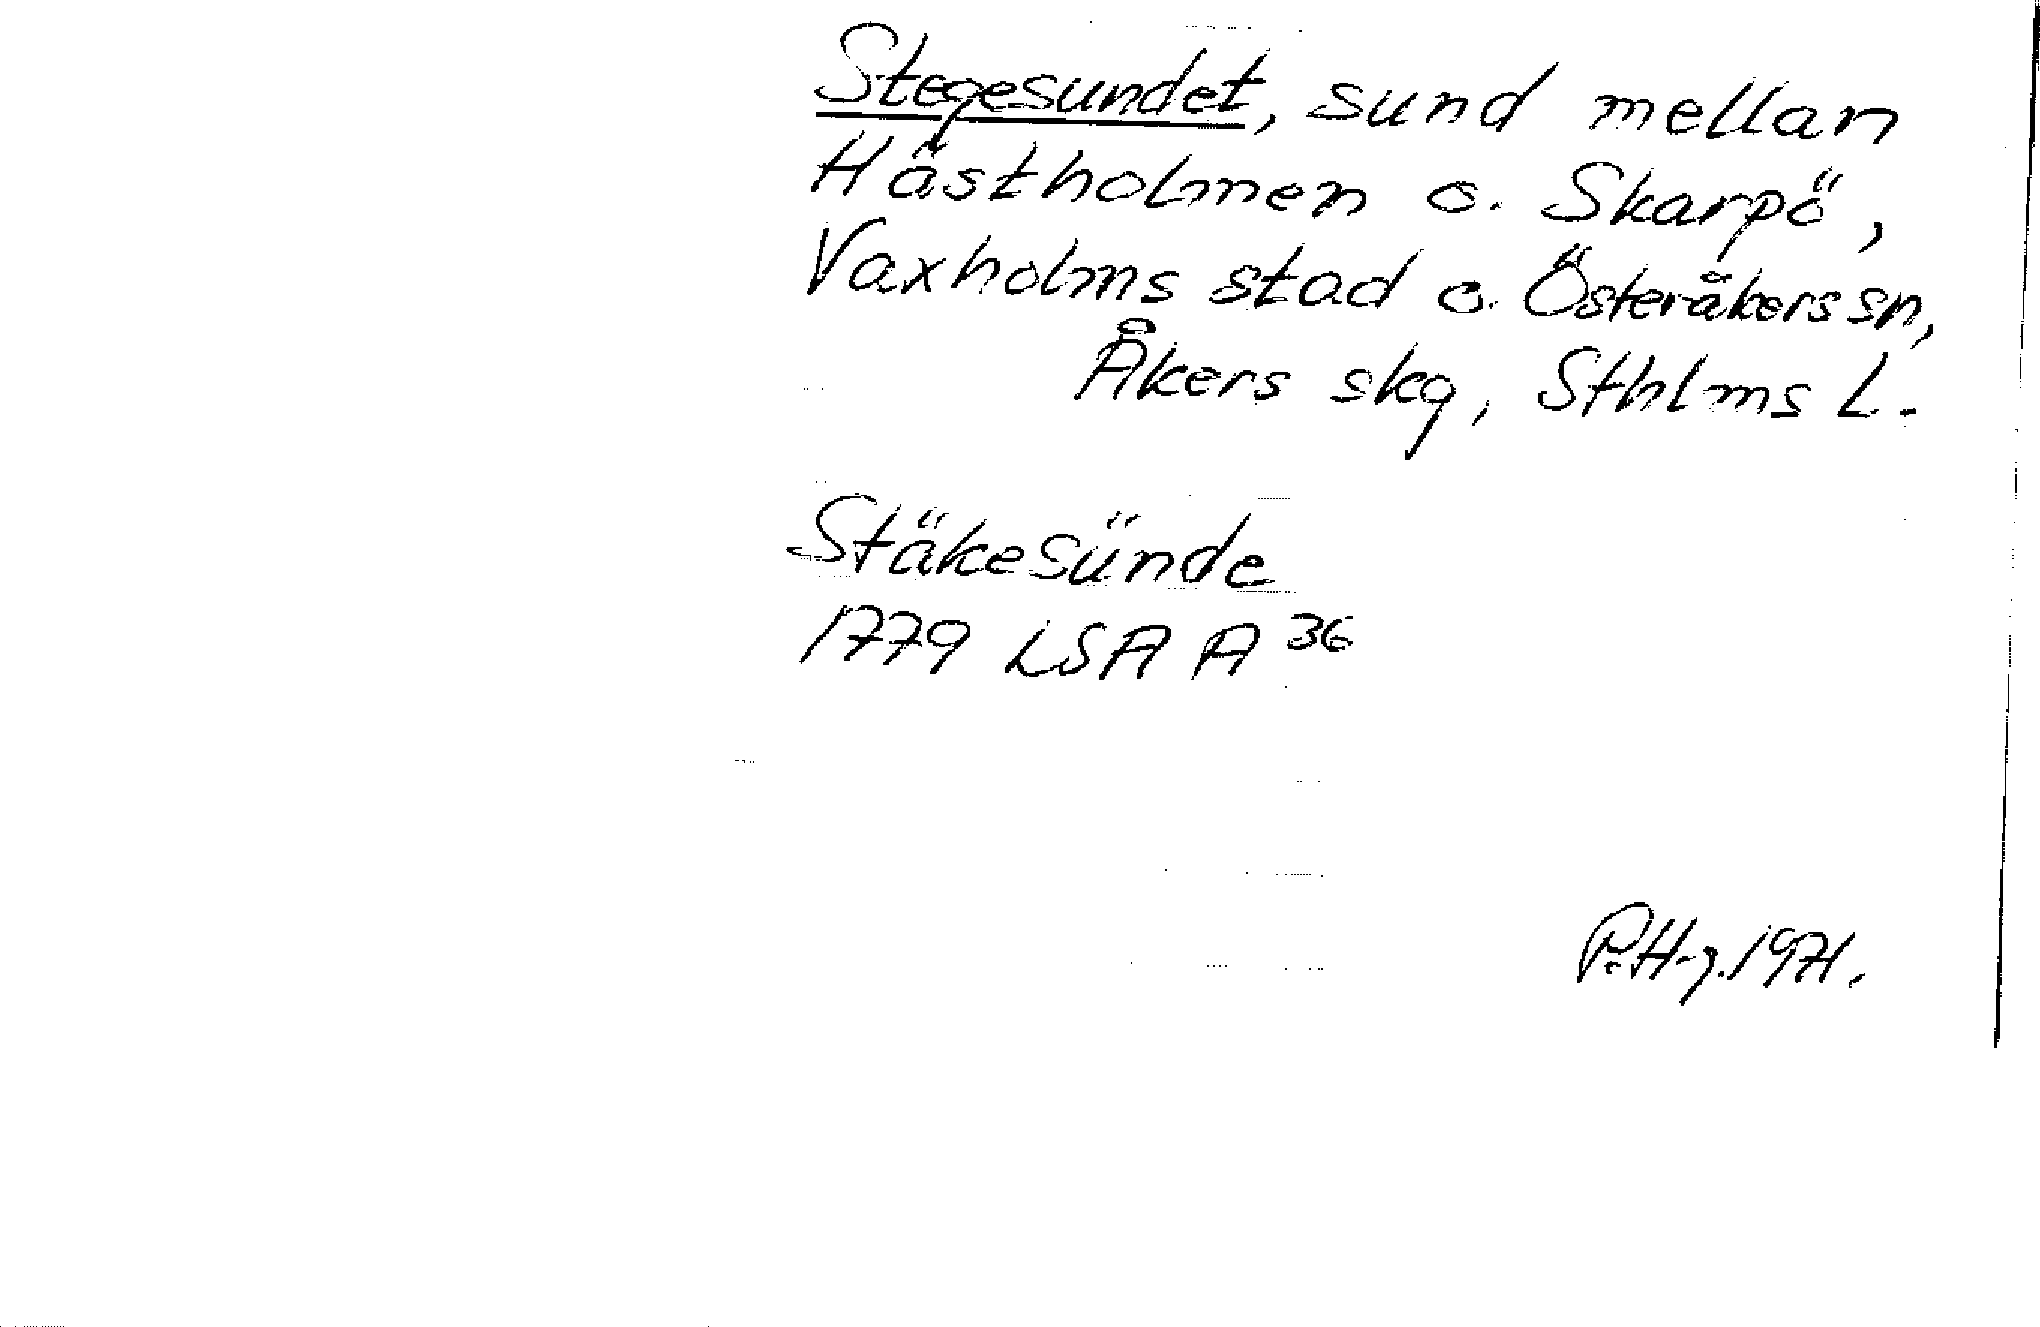 Stegesundet, sund mellan
Hästholmen o. Skarpö,
Vaxholms stad o. Österåkers sn,
Åkers skg, Sthlms L.
Stäkesünde
1779 LSA A 36
P. H-g. 1971.